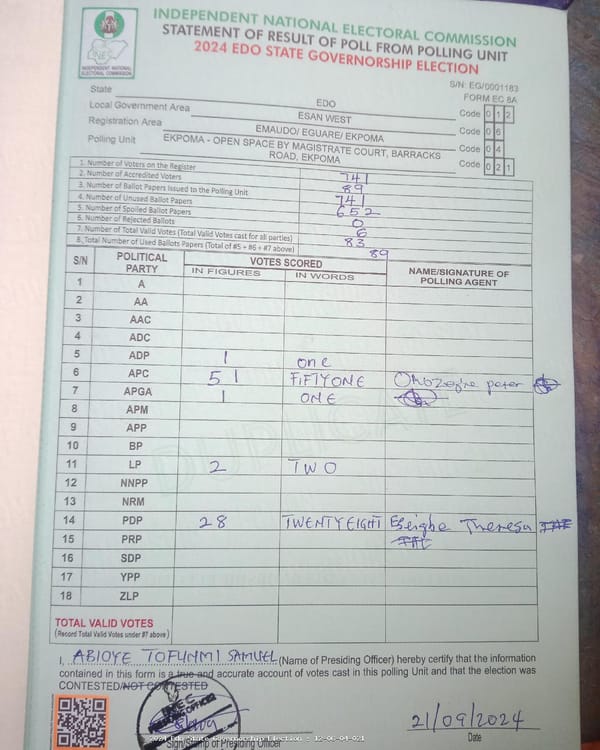 INDEPENDENT NATIONAL ELECTORAL COMMISSION
STATEMENT OF RESULT OF POLL FROM POLLING UNIT
2024 EDO STATE GOVERNORSHIP ELECTION
INEC
INDEPENDENT NATIONAL
ELECTORAL COMMISSION
S/N: EG/0001183
FORM EC 8A
State EDO Code 0 1 2
Local Government Area ESAN WEST Code 0 6
Registration Area EMAUDO/ EGUARE/ EKPOMA Code 0 4
Polling Unit EKPOMA - OPEN SPACE BY MAGISTRATE COURT, BARRACKS ROAD, EKPOMA Code 0 2 1
1. Number of Voters on the Register 741
2. Number of Accredited Voters 89
3. Number of Ballot Papers Issued to the Polling Unit 741
4. Number of Unused Ballot Papers 652
5. Number of Spoiled Ballot Papers 0
6. Number of Rejected Ballots 6
7. Number of Total Valid Votes (Total Valid Votes cast for all parties) 83
8. Total Number of Used Ballots Papers (Total of #5 + #6 + #7 above) 89
S/N POLITICAL PARTY VOTES SCORED NAME/SIGNATURE OF POLLING AGENT
IN FIGURES IN WORDS
1 A
2 AA
3 AAC
4 ADC
5 ADP 1 one
6 APC 51 FIFTYONE peter
7 APGA 1 ONE
8 APM
9 APP
10 BP
11 LP 2 TWO
12 NNPP
13 NRM
14 PDP 28 TWENTYEIGHT Eseigbe Theresa
15 PRP
16 SDP
17 YPP
18 ZLP
TOTAL VALID VOTES
(Record Total Valid Votes under #7 above)
I, ABIOYE TOFUNMI SAMUEL (Name of Presiding Officer) hereby certify that the information
contained in this form is a true and accurate account of votes cast in this polling Unit and that the election was
CONTESTED/NOT CONTESTED
21/09/2024
Sign/Stamp of Presiding Officer Date
2024 Edo State Governorship Election - 12-06-04-021